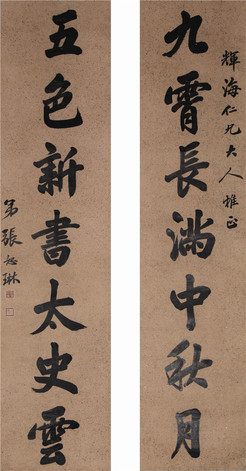 輝海仁兄大人雅正
九霄長滿中秋月
五色新書太史雲
弟張恕琳